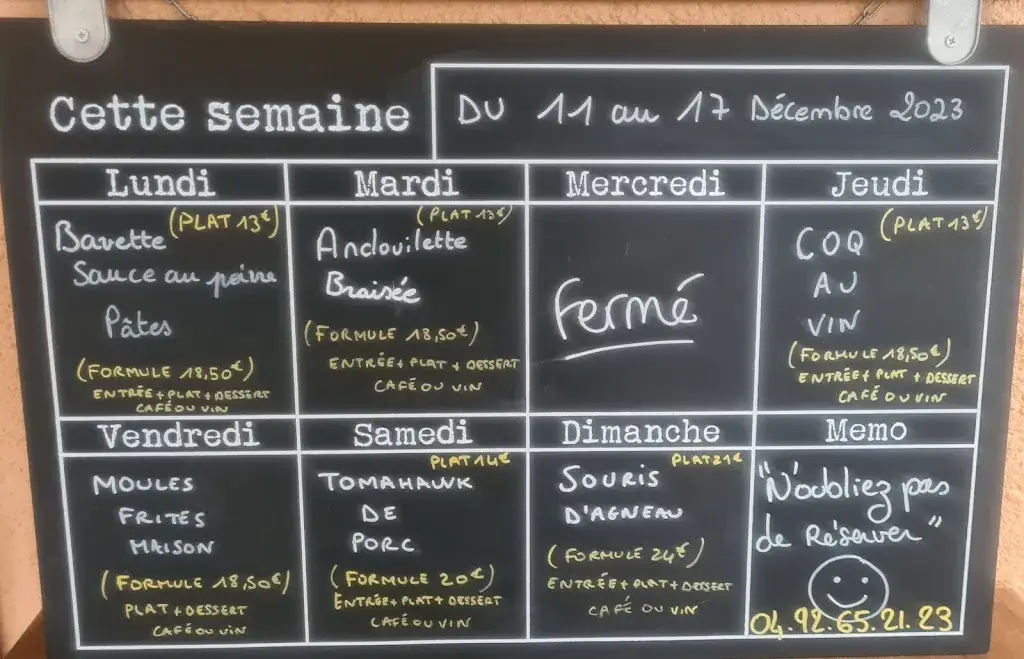 Cette semaine
DU 11 au 17 Décembre 2023
Lundi
(PLAT 13€)
Bavette
Sauce au poivre
Pâtes
(FORMULE 18,50€)
ENTRÉE + PLAT + DESSERT
CAFÉ OU VIN
Mardi
(PLAT 13€)
Andouilette
Braisée
(FORMULE 18,50€)
ENTRÉE + PLAT + DESSERT
CAFÉ OU VIN
Mercredi
Fermé
Jeudi
(PLAT 13€)
COQ
AU
VIN
(FORMULE 18,50€)
ENTRÉE + PLAT + DESSERT
CAFÉ OU VIN
Vendredi
MOULES
FRITES
MAISON
(FORMULE 18,50€)
PLAT + DESSERT
CAFÉ OU VIN
Samedi
PLAT 14€
TOMAHAWK
DE
PORC
(FORMULE 20€)
ENTRÉE + PLAT + DESSERT
CAFÉ OU VIN
Dimanche
PLAT 21€
SOURIS
D'AGNEAU
(FORMULE 24€)
ENTRÉE + PLAT + DESSERT
CAFÉ OU VIN
Memo
"N'oubliez pas
de Réserver"
04.92.65.21.23